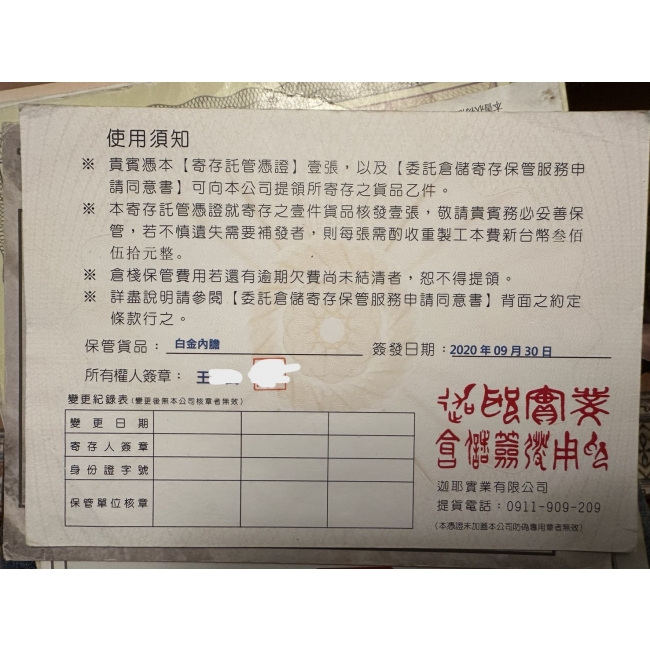 使用須知
※ 貴賓憑本【寄存託管憑證】壹張，以及【委託倉儲寄存保管服務申
請同意書】可向本公司提領所寄存之貨品乙件。
※ 本寄存託管憑證就寄存之壹件貨品核發壹張，敬請貴賓務必妥善保
管，若不慎遺失需要補發者，則每張需酌收重製工本費新台幣叁佰
伍拾元整。
※ 倉棧保管費用若還有逾期欠費尚未結清者，恕不得提領。
※ 詳盡說明請參閱【委託倉儲寄存保管服務申請同意書】背面之約定
條款行之。
保管貨品：白金內膽 簽發日期：2020 年 09 月 30 日
所有權人簽章：王
變更紀錄表（變更後無本公司核章者無效）
變更日期
寄存人簽章
身份證字號
保管單位核章
迦耶實業有限公司
提貨電話：0911-909-209
（本憑證未加蓋本公司防偽專用章者無效）